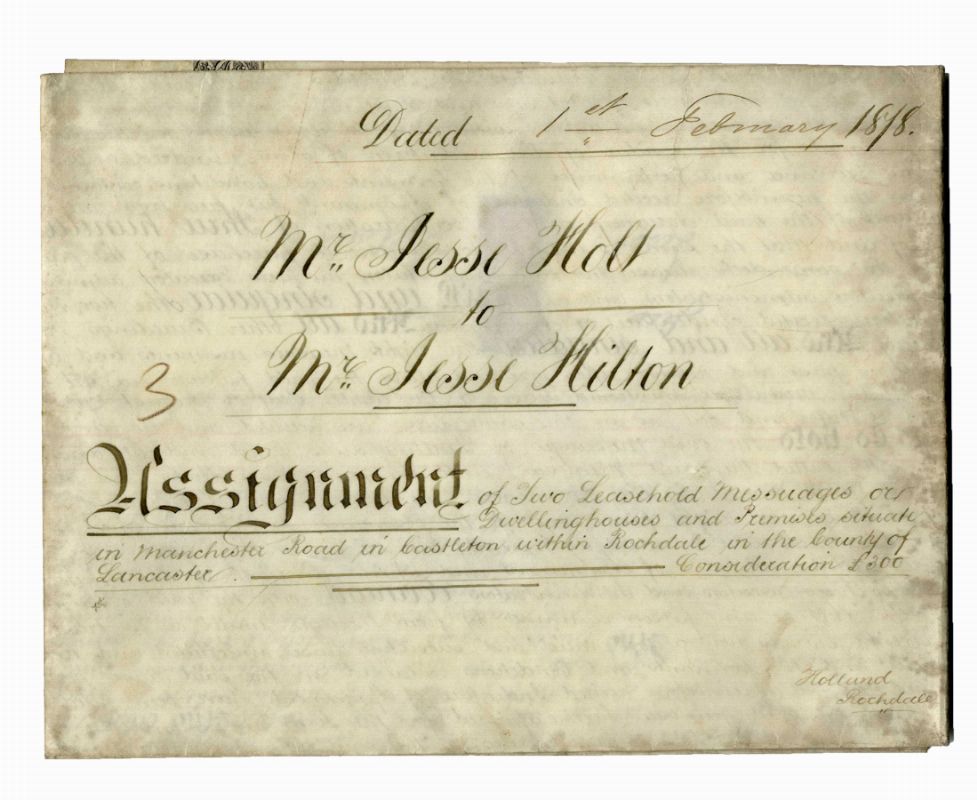 Dated 1st February 1878.
Mr. Jesse Holt
to
Mr. Jesse Hilton
3
Assignment of Two Leasehold Messuages or
Dwellinghouses and Premises situate
in Manchester Road in Castleton within Rochdale in the County of
Lancaster. Consideration £300
Holland
Rochdale